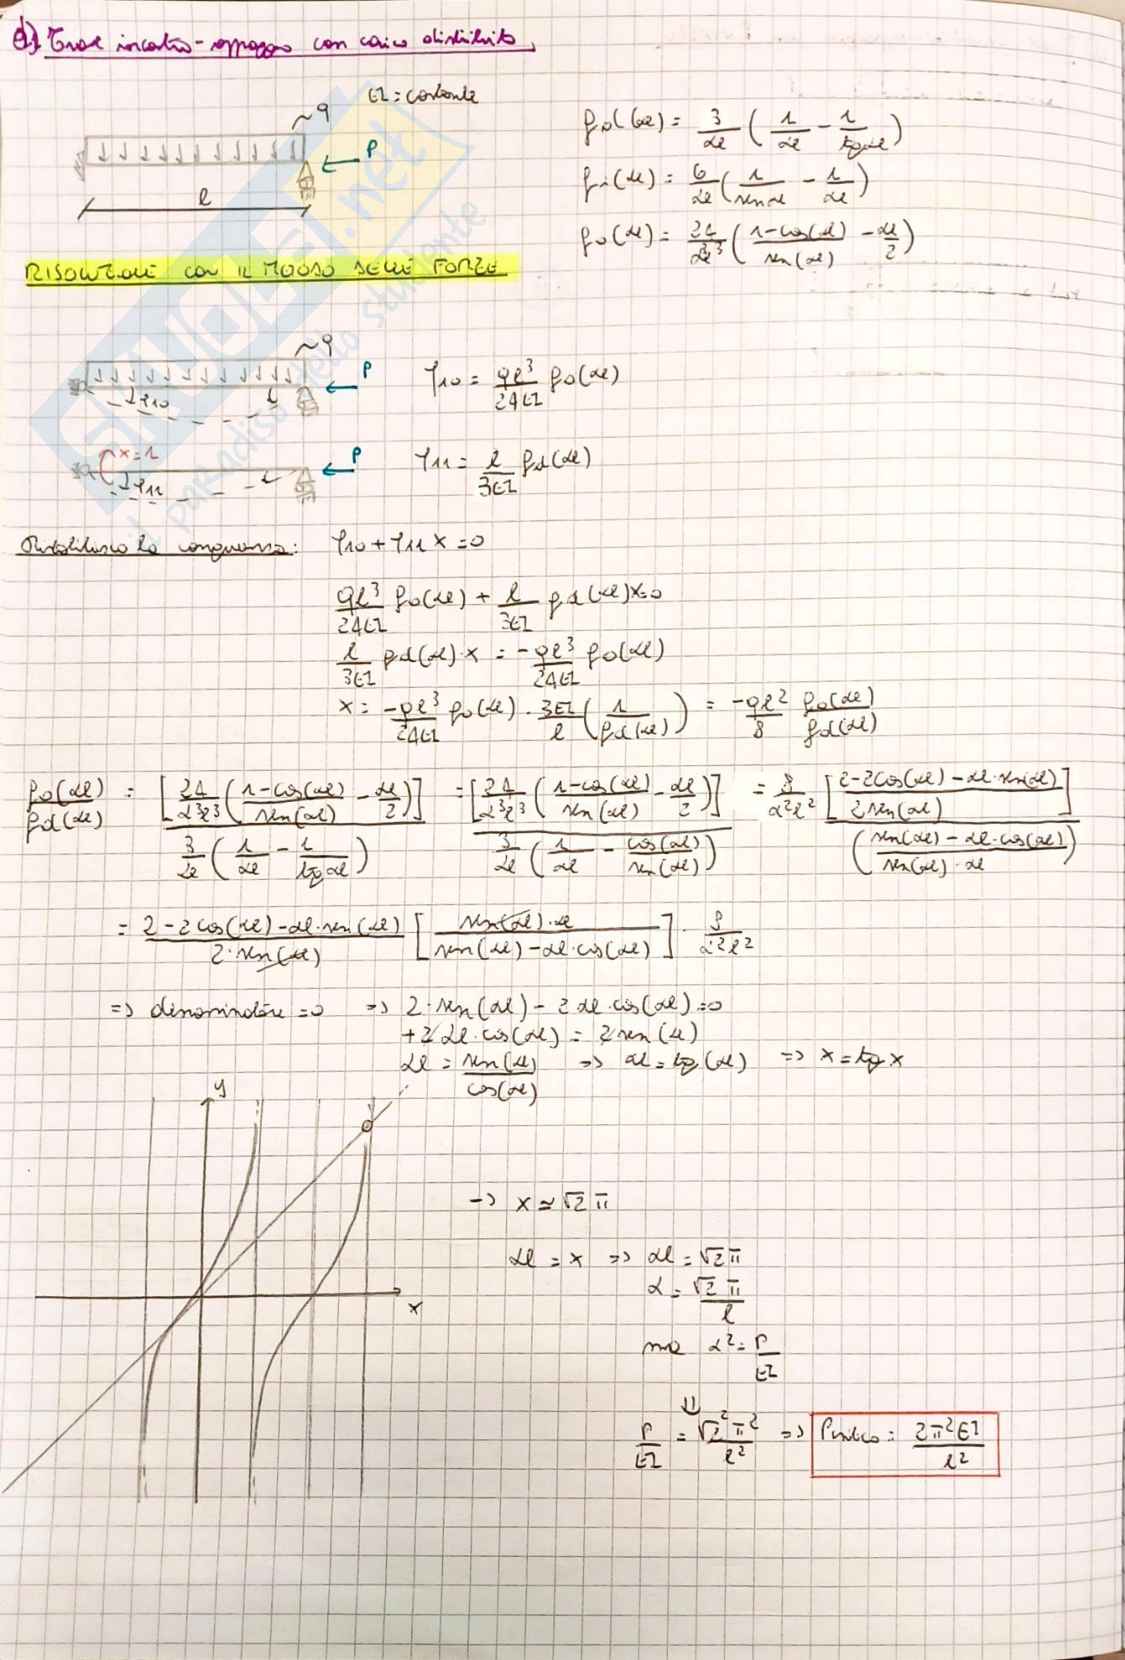 d) Trave incastro-appoggio con carico distribuito.
EI = costante
q
P
l
fd(αl) = 3/αl (1/αl - 1/tgαl)
fi(αl) = 6/αl (1/senαl - 1/αl)
fo(αl) = 24/αl³ (1-cos(αl)/sen(αl) - αl/2)
RISOLUZIONE CON IL METODO DELLE FORZE
q
P
φ10
φ10 = ql³/24EI fo(αl)
x=1
P
φ11
φ11 = l/3EI fd(αl)
Ristabilisco la congruenza: φ10 + φ11 x = 0
ql³/24EI fo(αl) + l/3EI fd(αl)x=0
l/3EI fd(αl)·x = -ql³/24EI fo(αl)
x = -ql³/24EI fo(αl) · 3EI/l (1/fd(αl)) = -ql²/8 fo(αl)/fd(αl)
fo(αl)/fd(αl) = [24/α³l³ (1-cos(αl)/sen(αl) - αl/2)] / 3/αl (1/αl - 1/tgαl) = [24/α³l³ (1-cos(αl)/sen(αl) - αl/2)] / 3/αl (1/αl - cos(αl)/sen(αl)) = 8/α²l² [2-2cos(αl)-αl·sen(αl)/2sen(αl)] / (sen(αl)-αl·cos(αl)/sen(αl)·αl)
= 2-2cos(αl)-αl·sen(αl)/2·sen(αl) [sen(αl)·αl/sen(αl)-αl·cos(αl)] · 8/α²l²
=> denominatore =0 => 2·sen(αl) - 2αl·cos(αl)=0
+2αl·cos(αl) = 2sen(αl)
αl = sen(αl)/cos(αl) => αl = tg(αl) => x = tg x
y
x
-> x ≃ √2 π
αl = x => αl = √2 π
α = √2 π/l
ma α² = P/EI
⇓
P/EI = √2² π²/l² => Pcritico = 2π²EI/l²
SKUOLA.net
il paradiso dello studente